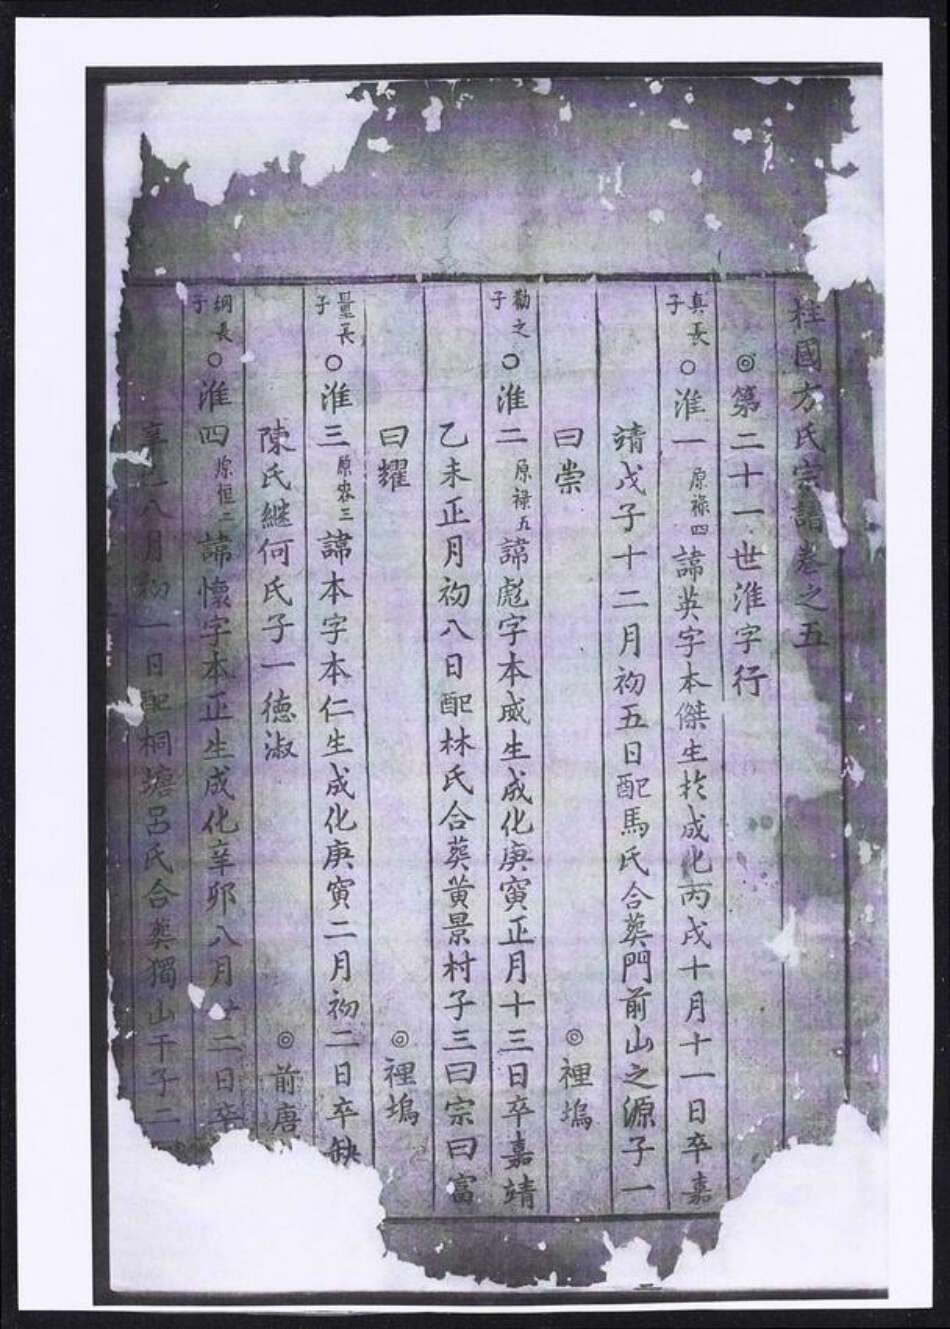 柱國方氏宗譜卷之五
◎第二十一世淮字行
真長子○淮一原祿四諱英字本傑生於成化丙戌十月十一日卒嘉
靖戊子十二月初五日配馬氏合葬門前山之源子一
曰崇 ◎裡塢
勸之子○淮二原祿五諱彪字本威生成化庚寅正月十三日卒嘉靖
乙未正月初八日配林氏合葬黃景村子三曰宗曰富
曰耀 ◎裡塢
量長子○淮三原容三諱本字本仁生成化庚寅二月初二日卒缺
陳氏繼何氏子一德淑 ◎前唐
綱長子○淮四原恒二諱懷字本正生成化辛卯八月十二日卒
八月初一日配桐塘呂氏合葬獨山干子二